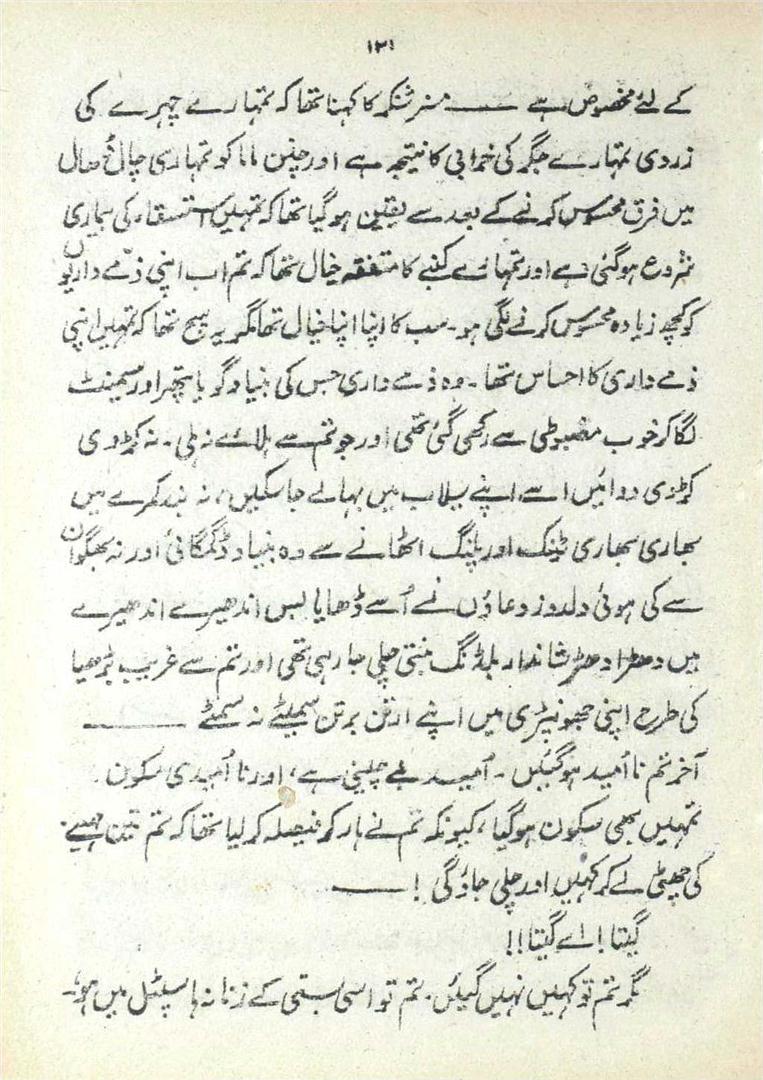 ۱۳۱
کے لئے مخصوص ہے ـــــــ مسز شنکر کا کہنا تھا کہ تمہارے چہرے کی
زردی تمہارے جگر کی خرابی کا نتیجہ ہے اور چنن ماما کو تمہاری چال ڈھال
میں فرق محسوس کرنے کے بعد سے یقین ہو گیا تھا کہ تمہیں استسقاء کی بیماری
شروع ہو گئی ہے اور تمہارے کنبے کا متفقہ خیال تھا کہ تم اب اپنی ذمے داریوں
کو کچھ زیادہ محسوس کرنے لگی ہو۔ سب کا اپنا اپنا خیال تھا مگر یہ سچ تھا کہ تمہیں اپنی
ذمے داری کا احساس تھا۔ وہ ذمے داری جس کی بنیاد گویا پتھر اور سمینٹ
لگا کر خوب مضبوطی سے رکھی گئی تھی اور جو تم سے ہلائے نہ ہلی۔ نہ کڑوی
کڑوی دوائیں اسے اپنے سیلاب میں بہالے جا سکیں، نہ بند کمرے میں
بھاری بھاری ٹینک اور پلنگ اٹھانے سے وہ بنیاد ڈگمگائی اور نہ بھگوان
سے کی ہوئی دلدوز دعاؤں نے اُسے ڈھایا بس اندھیرے اندھیرے
میں دھڑا دھڑ شاندار بلڈنگ بنتی چلی جا رہی تھی اور تم سے غریب بڑھیا
کی طرح اپنی جھونپڑی میں اپنے ارتن برتن سمیٹے نہ سمٹے ـــــــ
آخر تم نا اُمید ہو گئیں۔ اُمید بے چینی ہے، اور نا اُمیدی سکون۔
تمہیں بھی سکون ہو گیا، کیونکہ تم نے ہار کر فیصلہ کر لیا تھا کہ تم تین مہینے
کی چھٹی لے کر کہیں اور چلی جاؤ گی! ـــــــ
گیتا! اے گیتا!!
مگر تم تو کہیں نہیں گئیں۔ تم تو اسی بستی کے زنانہ ہاسپٹل میں ہو۔